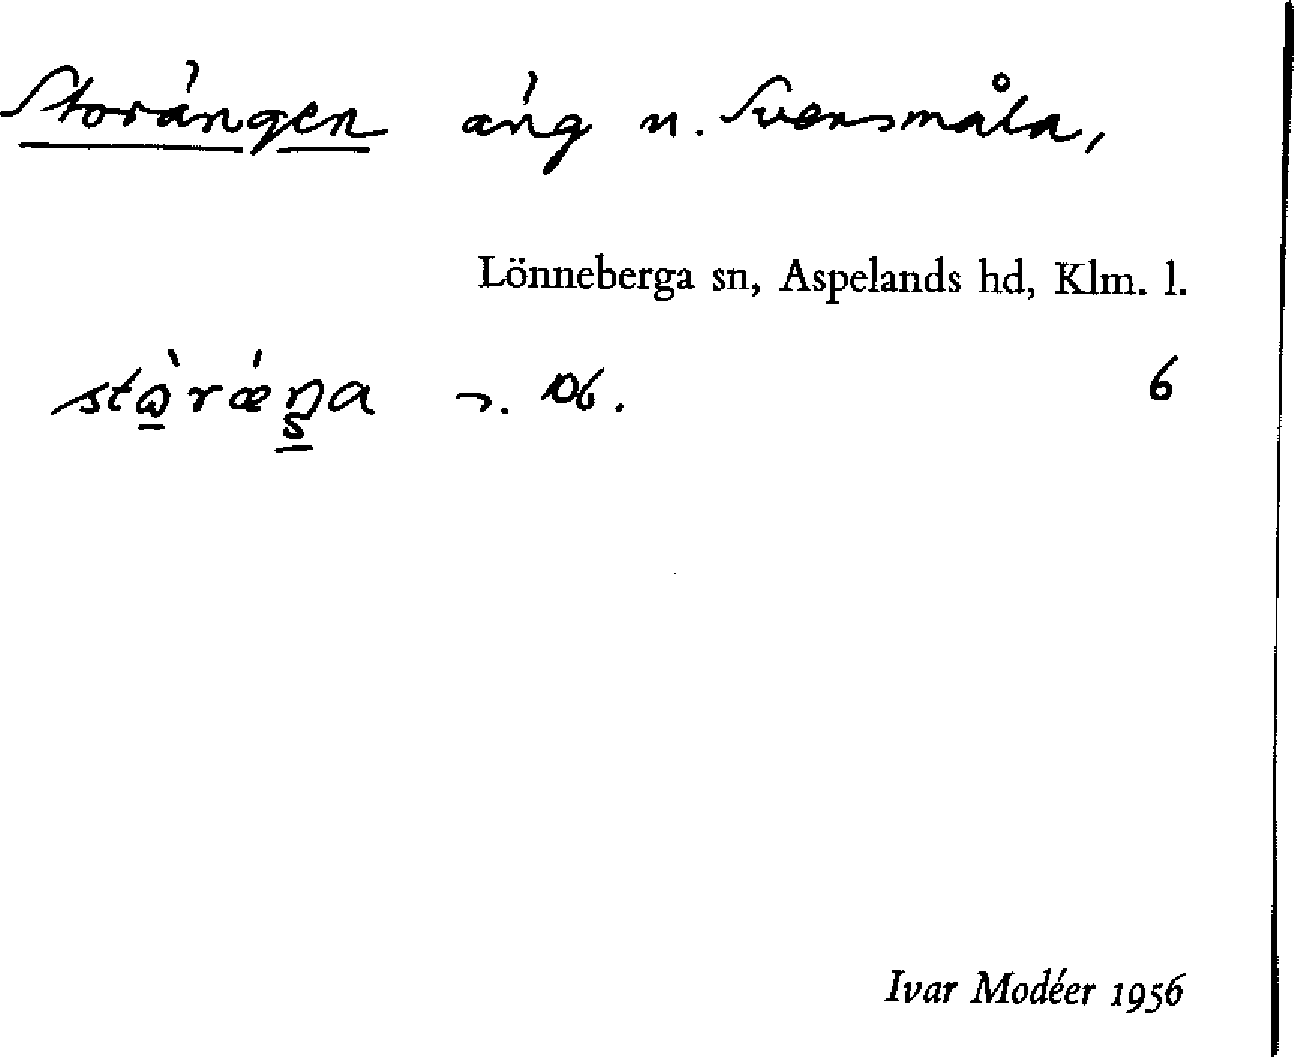 Storängen äng n. Svensmåla,
Lönneberga sn, Aspelands hd, Klm. l.
106. 6
Ivar Modéer 1956